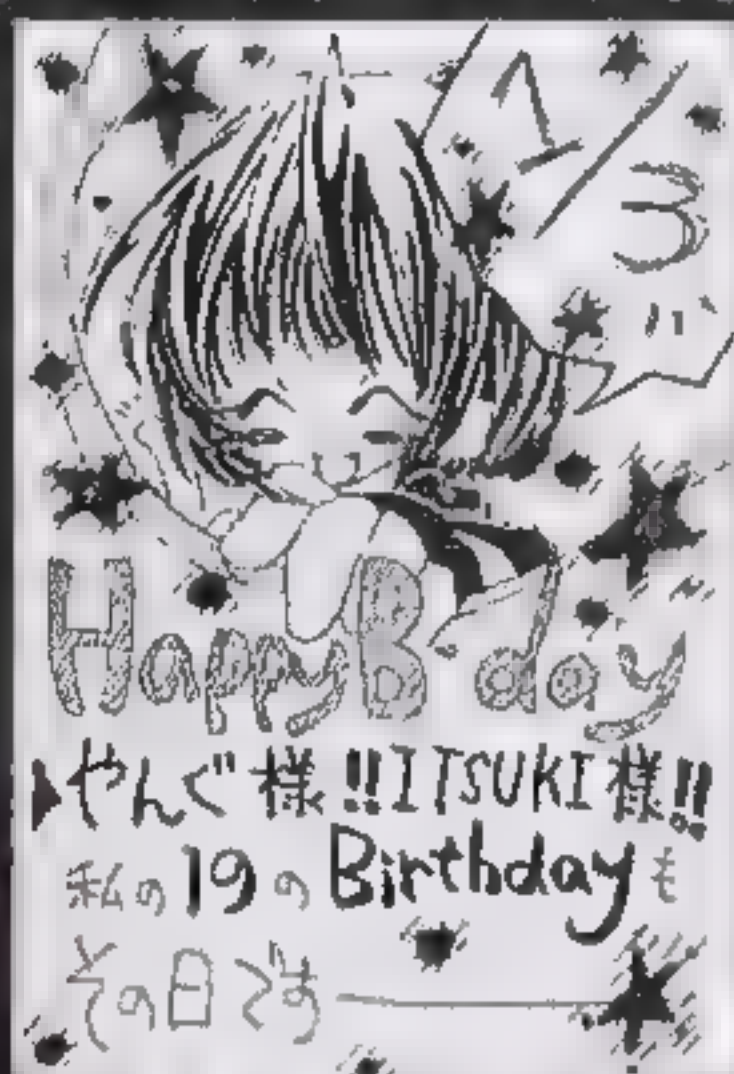 1/3
Happy B day
やんぐ様!!ITSUKI様!!
私の19のBirthdayも
その日です